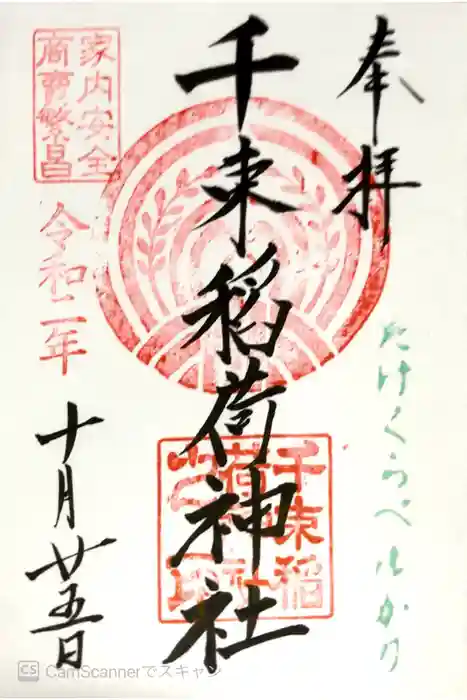 奉拝
たけくらべゆかり
千束稲荷神社
千束稲荷神社之印
家内安全
商売繁昌
令和二年
十月廿五日
CS CamScannerでスキャン